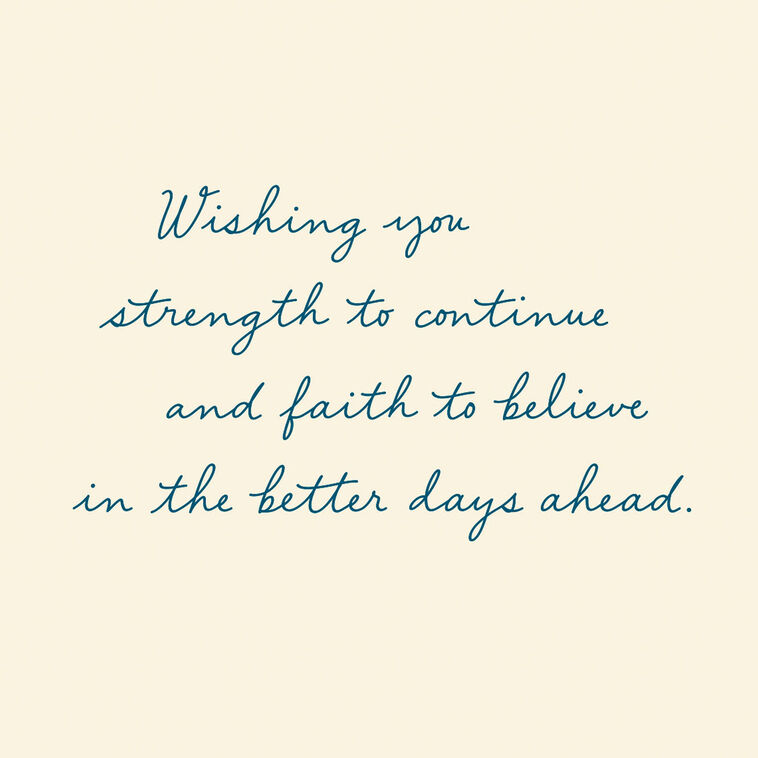 Wishing you
strength to continue
and faith to believe
in the better days ahead.